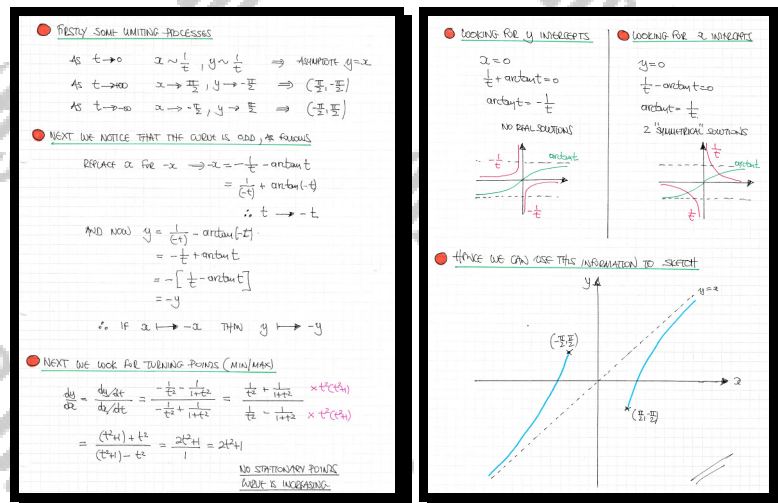 FIRSTLY SOME LIMITING PROCESSES
AS t→0 x ~ 1/t , y ~ 1/t ⇒ ASYMPTOTE y=x
AS t→+∞ x → π/2 , y → -π/2 ⇒ (π/2, -π/2)
AS t→-∞ x → -π/2 , y → π/2 ⇒ (-π/2, π/2)
NEXT WE NOTICE THAT THE CURVE IS ODD, AS FOLLOWS
REPLACE x FOR -x → -x = -1/t - arctan t
= 1/(-t) + arctan(-t)
∴ t → -t
AND NOW y = 1/(-t) - arctan(-t)
= -1/t + arctan t
= -[1/t - arctan t]
= -y
∴ IF x ↦ -x THEN y ↦ -y
NEXT WE LOOK FOR TURNING POINTS (MIN/MAX)
dy/dx = (dy/dt)/(dx/dt) = (-1/t² - 1/(1+t²))/(-1/t² + 1/(1+t²)) = (1/t² + 1/(1+t²))/(1/t² - 1/(1+t²)) × t²(t²+1) × t²(t²+1)
= ((t²+1) + t²)/((t²+1) - t²) = (2t²+1)/1 = 2t²+1
NO STATIONARY POINTS
CURVE IS INCREASING
LOOKING FOR y INTERCEPTS
x=0
1/t + arctan t = 0
arctan t = -1/t
NO REAL SOLUTIONS
-1/t
arctan t
-1/t
LOOKING FOR x INTERCEPTS
y=0
1/t - arctan t = 0
arctan t = 1/t
2 "SYMMETRICAL" SOLUTIONS
1/t
arctan t
1/t
HENCE WE CAN USE THIS INFORMATION TO SKETCH
y
y=x
(-π/2, π/2)
x
(π/2, -π/2)